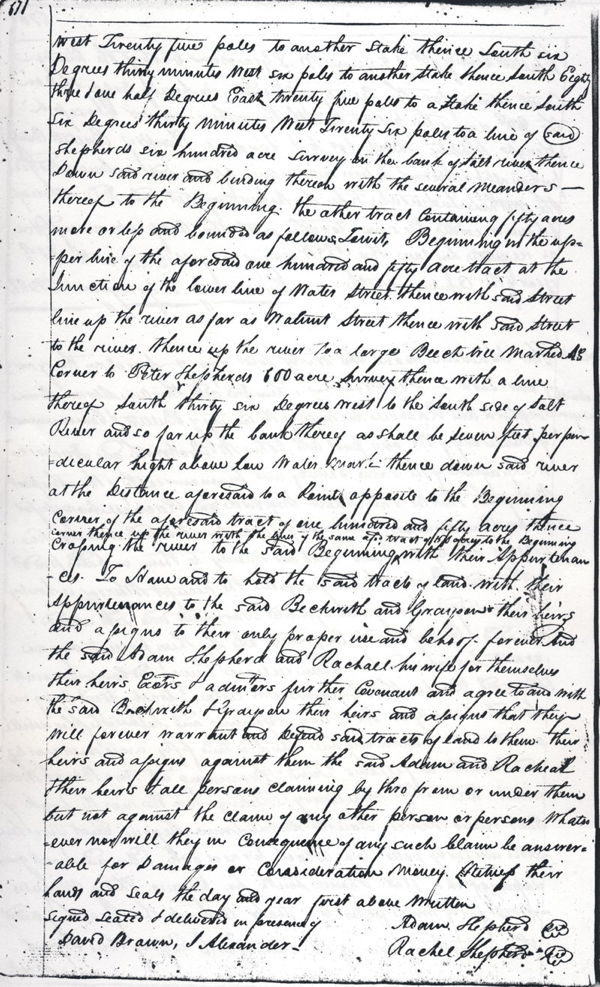 571
West Twenty five poles to another Stake thence South six
Degrees thirty minutes West six poles to another Stake thence South Eighty
three & one half Degrees East twenty five poles to a Stake thence South
Six Degrees thirty minutes West Twenty Six poles to a line of said
Shepherds six hundred acre Survey on the bank of Salt river thence
Down said river and binding thereon with the several Meanders —
thereof to the Beginning. the other tract Containing fifty acres
more or less and bounded as follows Towit, Beginning in the up=
=per line of the aforesaid one hundred and fifty acre tract at the
Junction of the lower line of Water Street thence with said Street
line up the river as far as Walnut Street thence with said Street
to the river. thence up the river to a large Beech tree marked AS
Corner to Peter Shepherds 600 acre Survey thence with a line
thereof South thirty six Degrees West to the South side of Salt
River and so far up the bank thereof as shall be seven feet perpen
=dicular hight above low Water mark thence down said river
at the Distance aforesaid to a Point opposite to the Beginning
Corner of the aforesaid tract of one hundred and fifty acres thence
corner thence up the river with the line of the same sd tract of 150 acres to the Beginning
Crossing the river to the said Beginning with their Appurtenan
=ces. To Have and to hold the said tracts of land with their
Appurtenances to the said Beckwith and Grayson & their heirs
and assigns to their only proper use and behoof forever And
the said Adam Shepherd and Rachall his wife for themselves
their heirs Exctrs & admtrs further Covenant and agree to and with
the said Beckwith & Grayson their heirs and assigns that they
will forever warrant and Defend said tracts of land to them their
heirs and assigns against them the said Adam and Racheal
& their heirs & all persons claiming by thro from or under them
but not against the claim of any other person or persons Whatso
=ever nor will they in Consequence of any such Claim be answer=
=able for Damages or Consideration Money. Witness their
hands and seals the day and year first above Written
Signed Sealed & delivered in presence of
Adam Shepherd
David Brown, J Alexander —
Rachel Shepherd